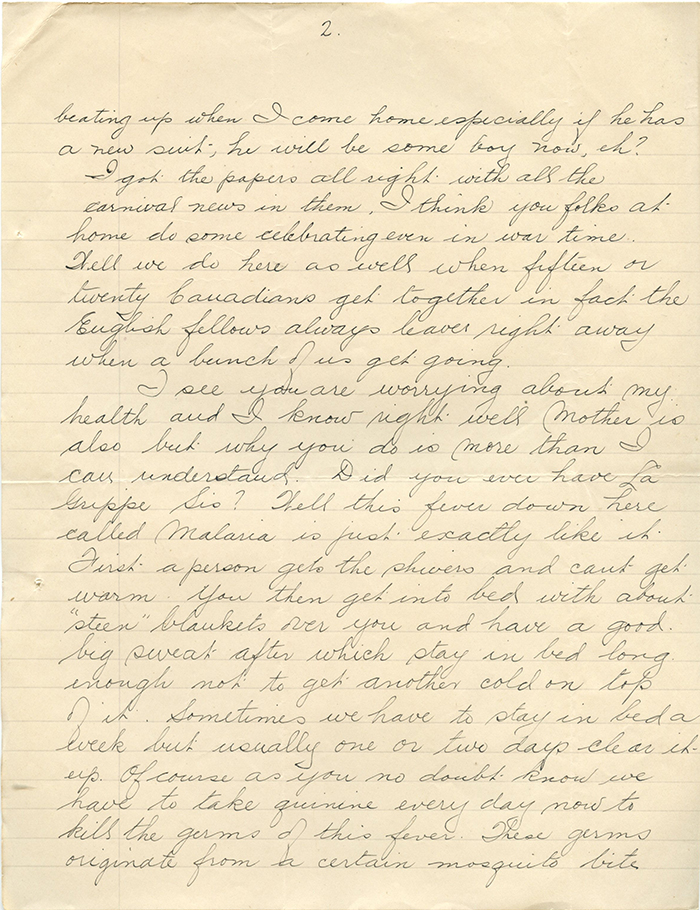 2.
beating up when I come home especially if he has
a new suit, he will be some boy now, eh?
I got the papers all right with all the
carnival news in them. I think you folks at
home do some celebrating even in war time.
Well we do here as well when fifteen or
twenty Canadians get together in fact the
English fellows always leave right away
when a bunch of us get going.
I see you are worrying about my
health and I know right well Mother is
also but why you do is more than I
can understand. Did you ever have La
Grippe Sis? Well this fever down here
called Malaria is just exactly like it.
First a person gets the shivers and cant get
warm. You then get into bed with about
"steen" blankets over you and have a good
big sweat after which stay in bed long
enough not to get another cold on top
of it. Sometimes we have to stay in bed a
week but usually one or two days clear it
up. Of course as you no doubt know we
have to take quinine every day now to
kill the germs of this fever. These germs
originate from a certain mosquito bite